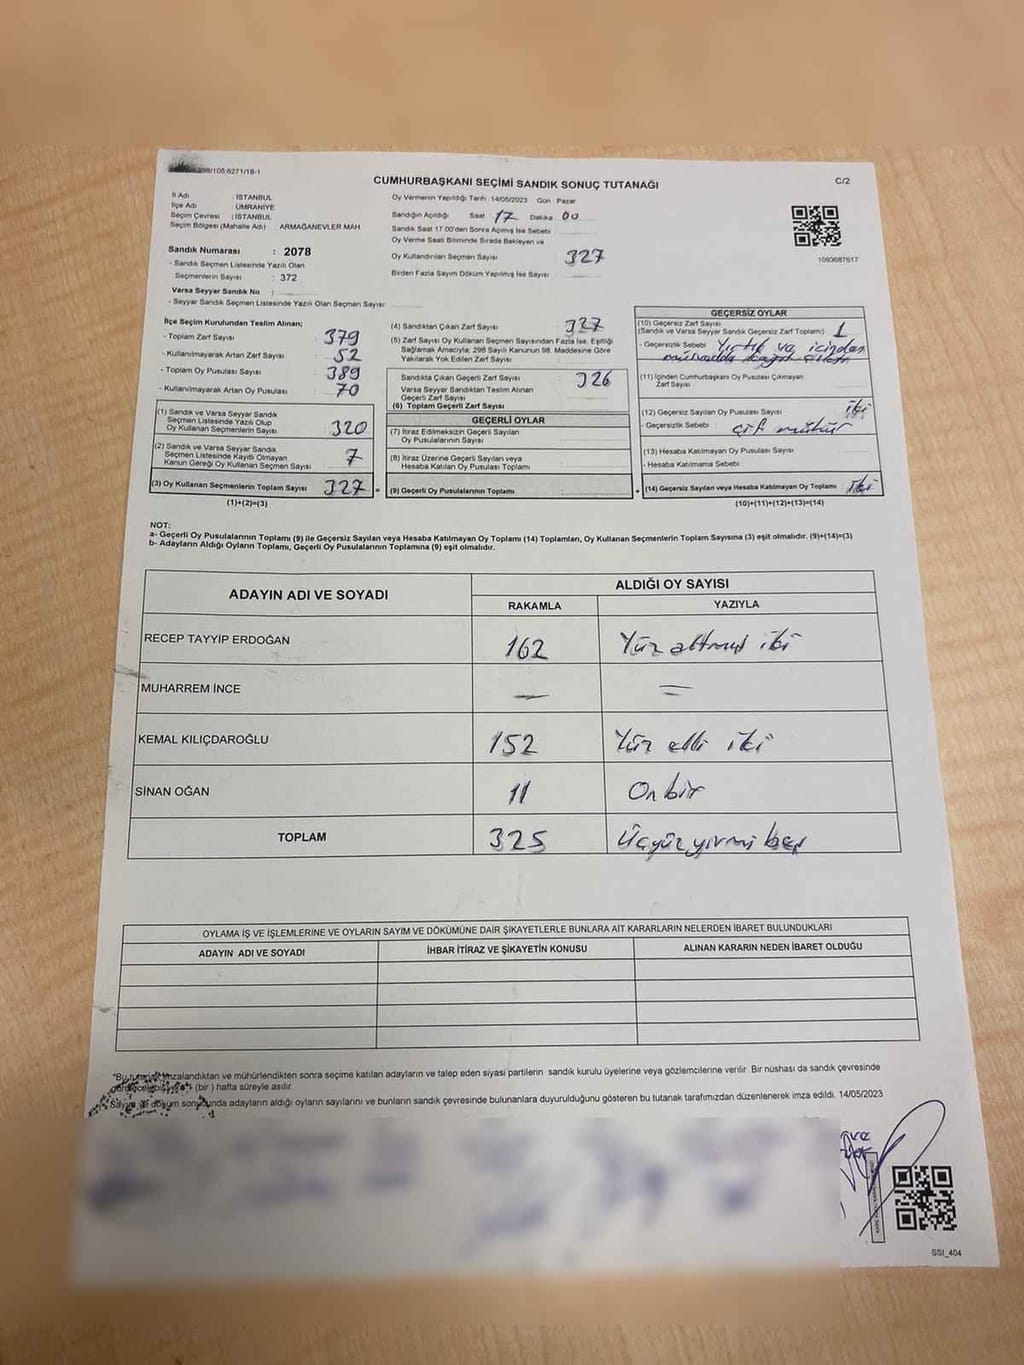 298/105.6271/18-1
CUMHURBAŞKANI SEÇİMİ SANDIK SONUÇ TUTANAĞI
C/2
İl Adı : İSTANBUL
İlçe Adı : ÜMRANİYE
Seçim Çevresi : İSTANBUL
Seçim Bölgesi (Mahalle Adı) : ARMAĞANEVLER MAH.
Sandık Numarası : 2078
- Sandık Seçmen Listesinde Yazılı Olan
Seçmenlerin Sayısı : 372
Varsa Seyyar Sandık No :
- Seyyar Sandık Seçmen Listesinde Yazılı Olan Seçmen Sayısı
Oy Vermenin Yapıldığı Tarih :14/05/2023 Gün : Pazar
Sandığın Açıldığı Saat 17 Dakika : 00
Sandık Saat 17.00'den Sonra Açılmış İse Sebebi
Oy Verme Saati Bitiminde Sırada Bekleyen ve
Oy Kullandırılan Seçmen Sayısı 327
Birden Fazla Sayım Döküm Yapılmış İse Sayısı
1093687617
İlçe Seçim Kurulundan Teslim Alınan;
- Toplam Zarf Sayısı 379
- Kullanılmayarak Artan Zarf Sayısı 52
- Toplam Oy Pusulası Sayısı 389
- Kullanılmayarak Artan Oy Pusulası 70
(1) Sandık ve Varsa Seyyar Sandık
Seçmen Listesinde Yazılı Olup
Oy Kullanan Seçmenlerin Sayısı 320
(2) Sandık ve Varsa Seyyar Sandık
Seçmen Listesinde Kayıtlı Olmayan
Kanun Gereği Oy Kullanan Seçmen Sayısı 7
(3) Oy Kullanan Seçmenlerin Toplam Sayısı 327 =
(1)+(2)=(3)
(4) Sandıktan Çıkan Zarf Sayısı 327
(5) Zarf Sayısı Oy Kullanan Seçmen Sayısından Fazla İse, Eşitliği
Sağlamak Amacıyla; 298 Sayılı Kanunun 98. Maddesine Göre
Yakılarak Yok Edilen Zarf Sayısı
Sandıkta Çıkan Geçerli Zarf Sayısı 326
Varsa Seyyar Sandıktan Teslim Alınan
Geçerli Zarf Sayısı
(6) Toplam Geçerli Zarf Sayısı
GEÇERLİ OYLAR
(7) İtiraz Edilmeksizin Geçerli Sayılan
Oy Pusulalarının Sayısı
(8) İtiraz Üzerine Geçerli Sayılan veya
Hesaba Katılan Oy Pusulası Toplamı
(9) Geçerli Oy Pusulalarının Toplamı +
GEÇERSİZ OYLAR
(10) Geçersiz Zarf Sayısı
(Sandık ve Varsa Seyyar Sandık Geçersiz Zarf Toplamı) 1
- Geçersizlik Sebebi Yırtık ve içinden
(11) İçinden Cumhurbaşkanı Oy Pusulası Çıkmayan
Zarf Sayısı
(12) Geçersiz Sayılan Oy Pusulası Sayısı iki
- Geçersizlik Sebebi : çift mühür
(13) Hesaba Katılmayan Oy Pusulası Sayısı
- Hesaba Katılmama Sebebi
(14) Geçersiz Sayılan veya Hesaba Katılmayan Oy Toplamı iki
(10)+(11)+(12)+(13)=(14)
NOT:
a- Geçerli Oy Pusulalarının Toplamı (9) ile Geçersiz Sayılan veya Hesaba Katılmayan Oy Toplamı (14) Toplamları, Oy Kullanan Seçmenlerin Toplam Sayısına (3) eşit olmalıdır. (9)+(14)=(3)
b- Adayların Aldığı Oyların Toplamı, Geçerli Oy Pusulalarının Toplamına (9) eşit olmalıdır.
ADAYIN ADI VE SOYADI ALDIĞI OY SAYISI
RAKAMLA YAZIYLA
RECEP TAYYİP ERDOĞAN 162 Yüz altmış iki
MUHARREM İNCE — =
KEMAL KILIÇDAROĞLU 152 Yüz elli iki
SİNAN OĞAN 11 On bir
TOPLAM 325 Üçyüz yirmi beş
OYLAMA İŞ VE İŞLEMLERİNE VE OYLARIN SAYIM VE DÖKÜMÜNE DAİR ŞİKAYETLERLE BUNLARA AİT KARARLARIN NELERDEN İBARET BULUNDUKLARI
ADAYIN ADI VE SOYADI İHBAR İTİRAZ VE ŞİKAYETİN KONUSU ALINAN KARARIN NEDEN İBARET OLDUĞU
"Bu imzalandıktan ve mühürlendikten sonra seçime katılan adayların ve talep eden siyasi partilerin sandık kurulu üyelerine veya gözlemcilerine verilir. Bir nüshası da sandık çevresinde
(bir ) hafta süreyle asılır.
Sayım ve döküm sonucunda adayların aldığı oyların sayılarını ve bunların sandık çevresinde bulunanlara duyurulduğunu gösteren bu tutanak tarafımızdan düzenlenerek imza edildi. 14/05/2023
SSI_404